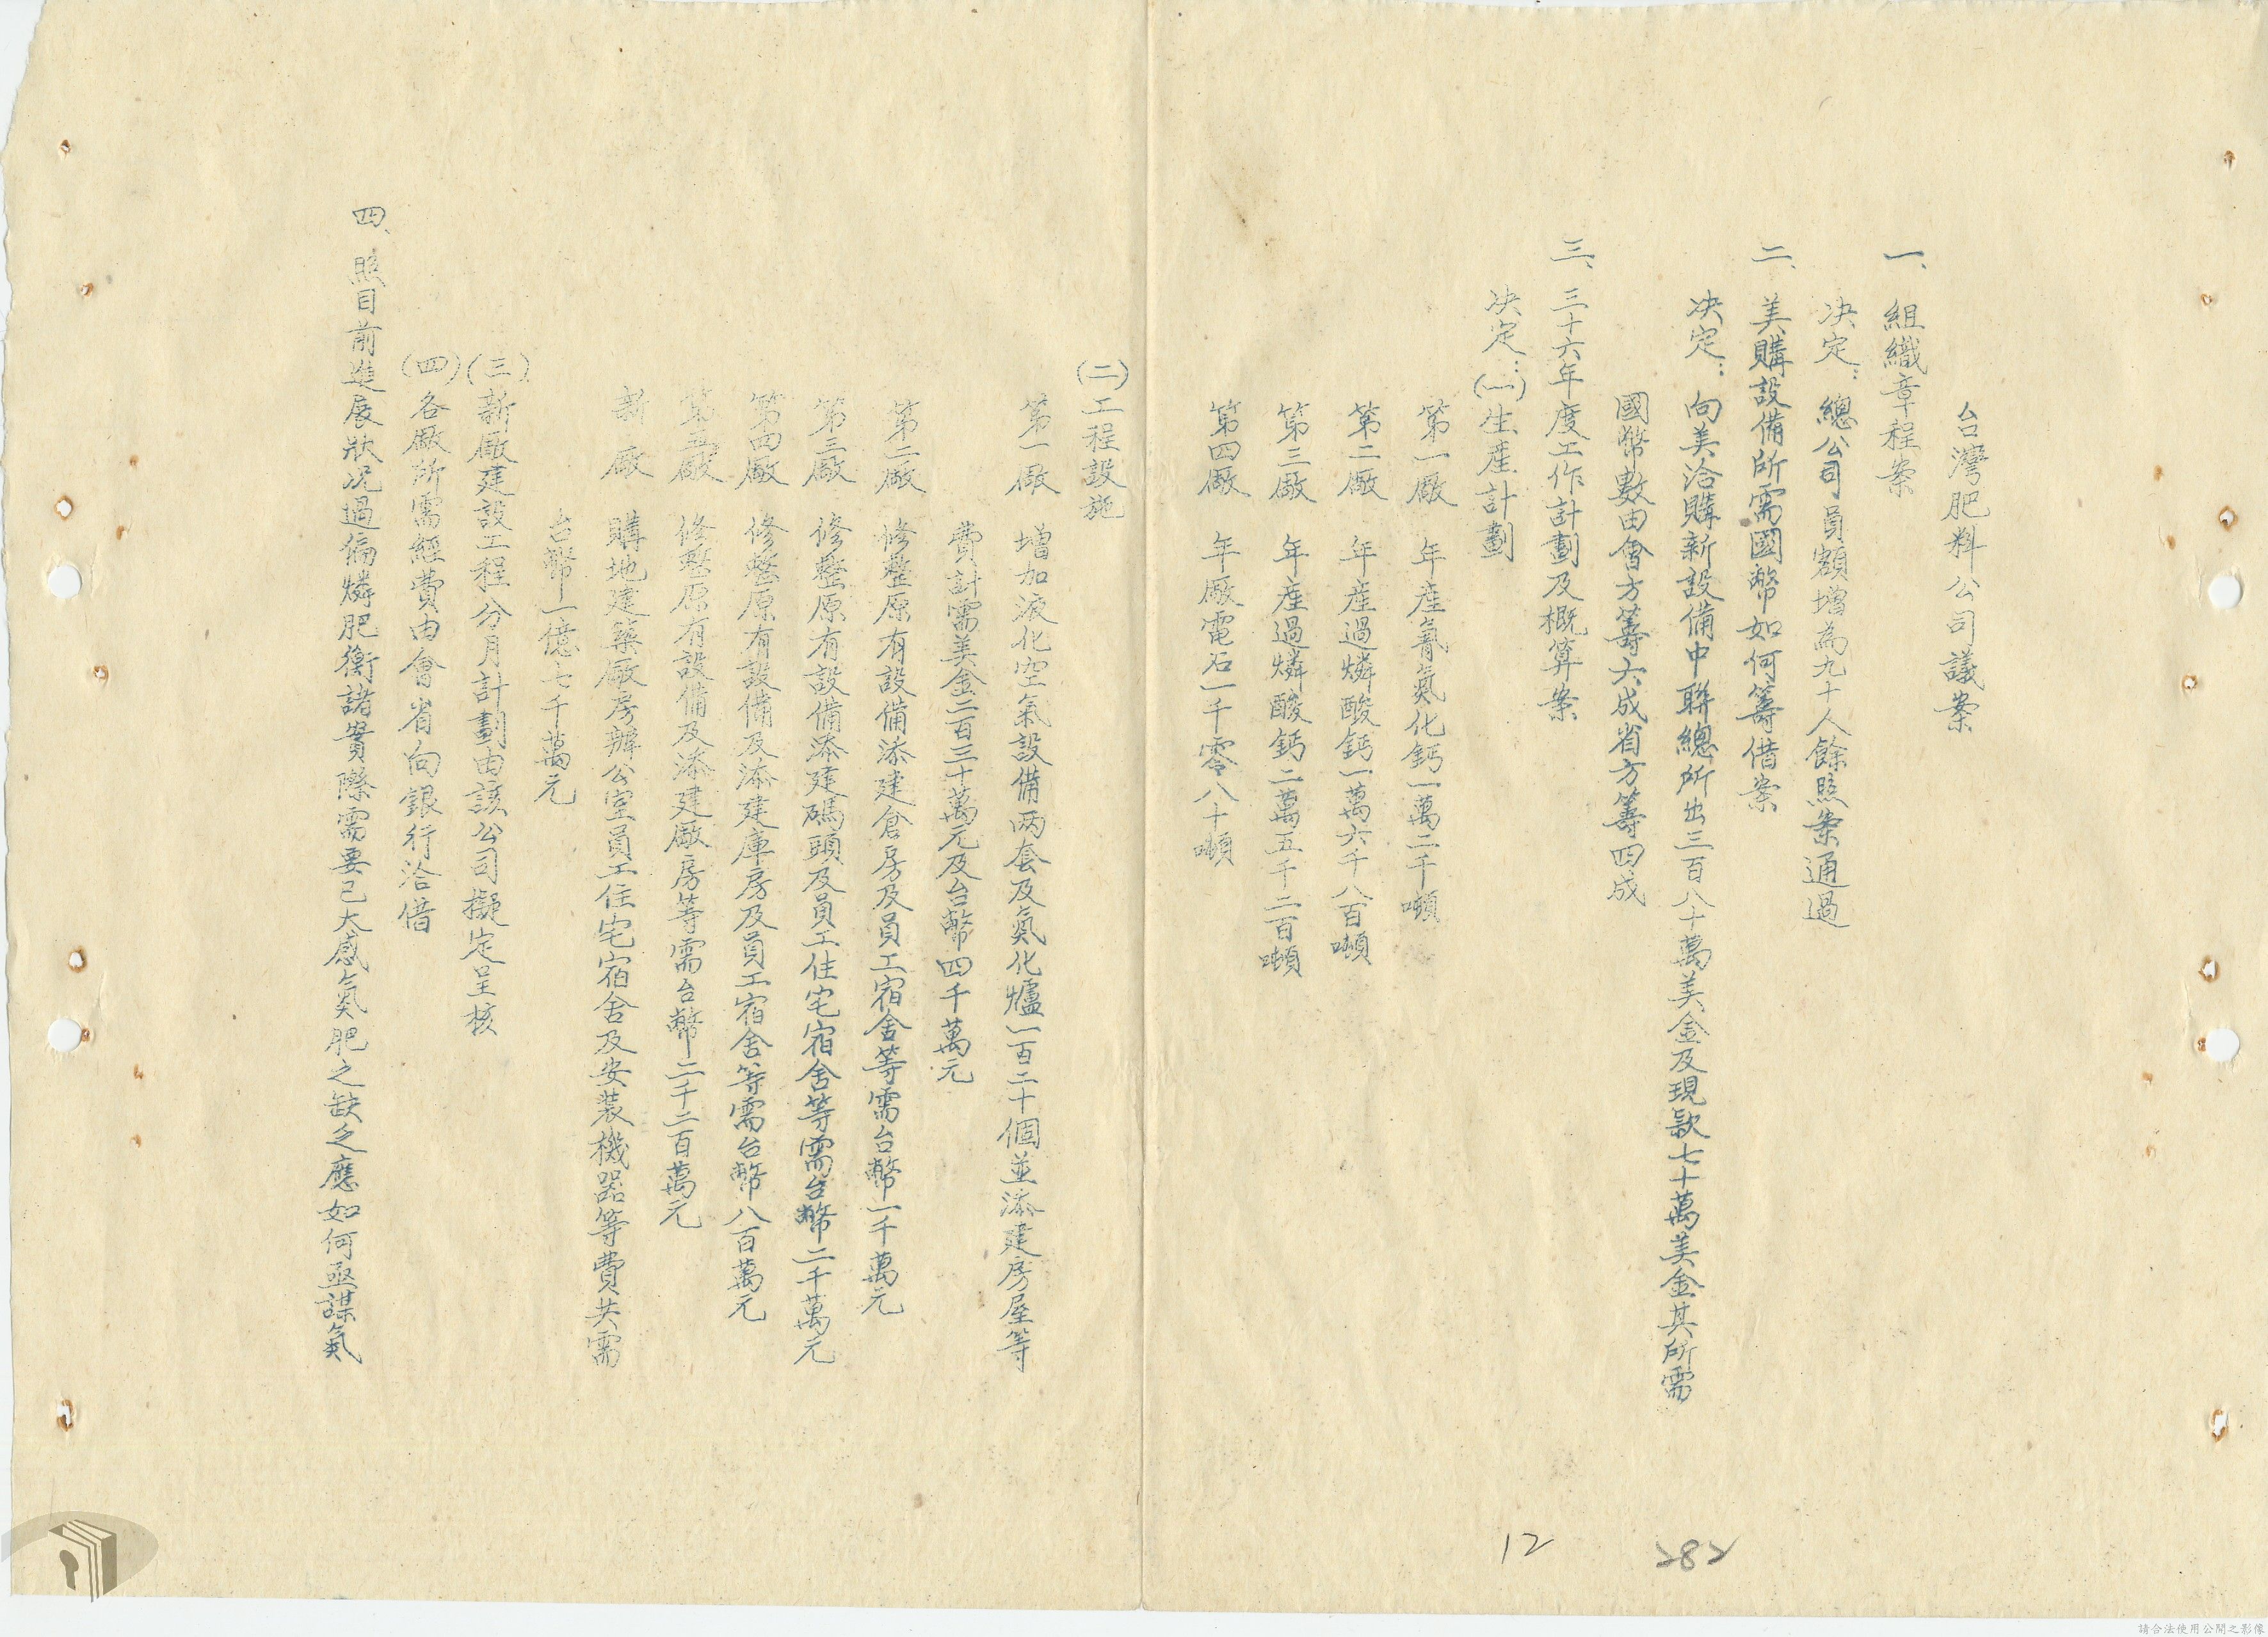 台灣肥料公司議案
一、組織章程案
決定：總公司員額增為九十人餘照案通過
二、美購設備所需國幣如何籌借案
決定：向美洽購新設備中聯總所出三百八十萬美金及現款七十萬美金其所需
國幣數由會方籌六成省方籌四成
三、三十六年度工作計劃及概算案
決定：(一)生產計劃
第一廠　年產氰氮化鈣一萬二千噸
第二廠　年產過燐酸鈣一萬六千八百噸
第三廠　年產過燐酸鈣二萬五千二百噸
第四廠　年廠電石一千零八十噸
(二)工程設施
第一廠　增加液化空氣設備兩套及氮化爐一百二十個並添建房屋等
費計需美金二百三十萬元及台幣四千萬元
第二廠　修整原有設備添建倉房及員工宿舍等需台幣一千萬元
第三廠　修整原有設備添建碼頭及員工住宅宿舍等需台幣二千萬元
第四廠　修整原有設備及添建庫房及員工宿舍等需台幣八百萬元
第五廠　修整原有設備及添建廠房等需台幣二千二百萬元
新廠　購地建築廠房辦公室員工住宅宿舍及安裝機器等費共需
台幣一億七千萬元
(三)新廠建設工程分月計劃由該公司擬定呈核
(四)各廠所需經費由會省向銀行洽借
四、照目前進展狀況過偏燐肥衡諸實際需要已大感氮肥之缺乏應如何亟謀氮
12
282
請合法使用公開之影像